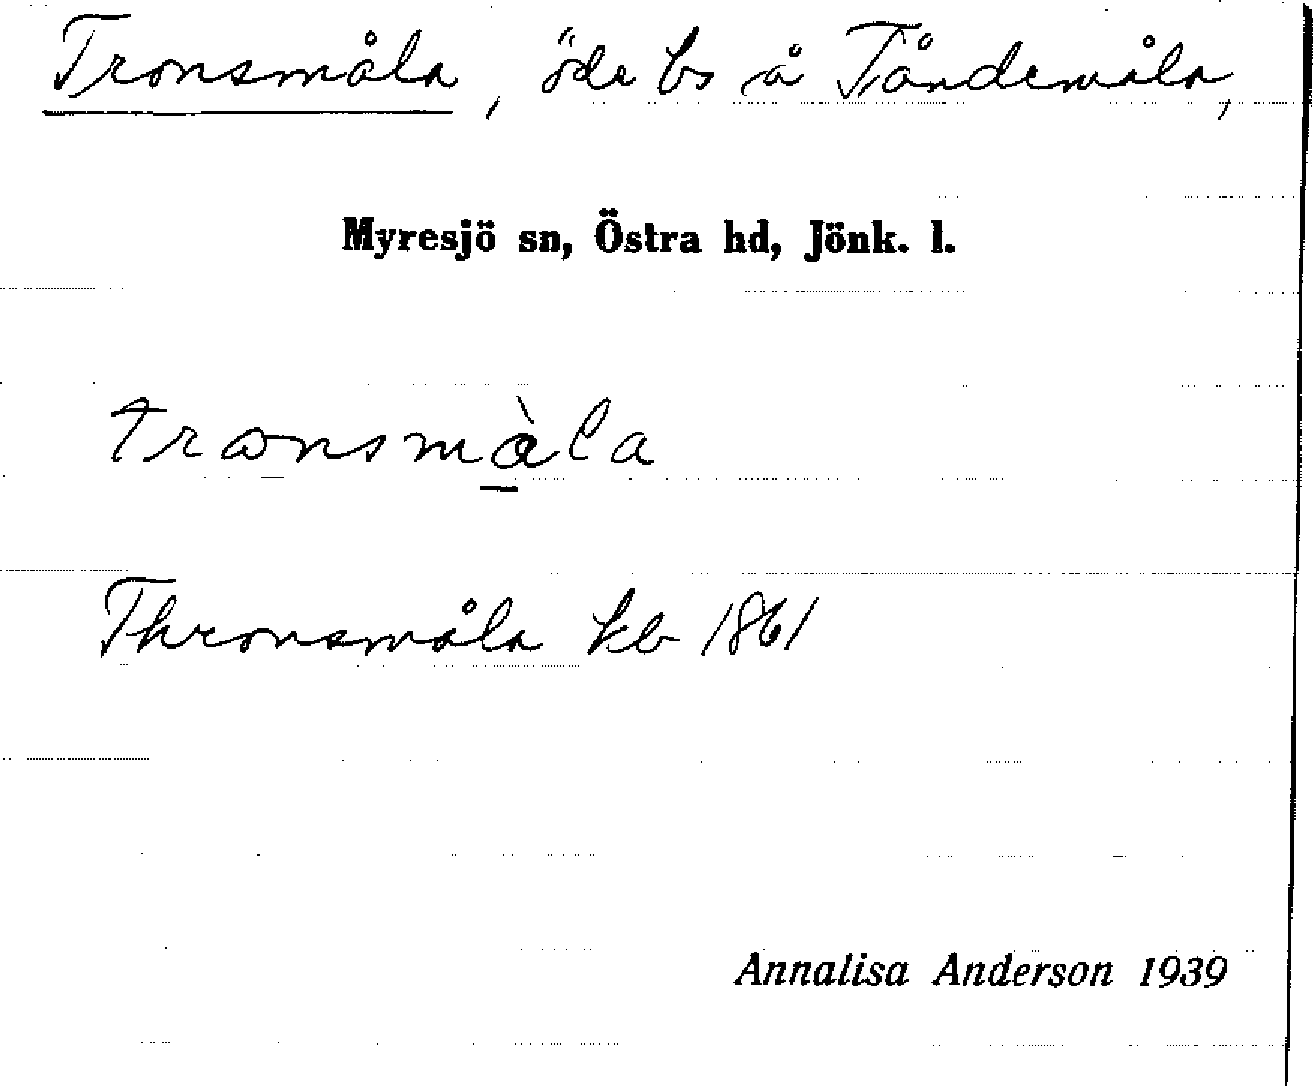 Tronsmåla, öde bs å Tåndemåla,
Myresjö sn, Östra hd, Jönk. l.
transmàla
Thronsmåla kb 1861
Annalisa Anderson 1939